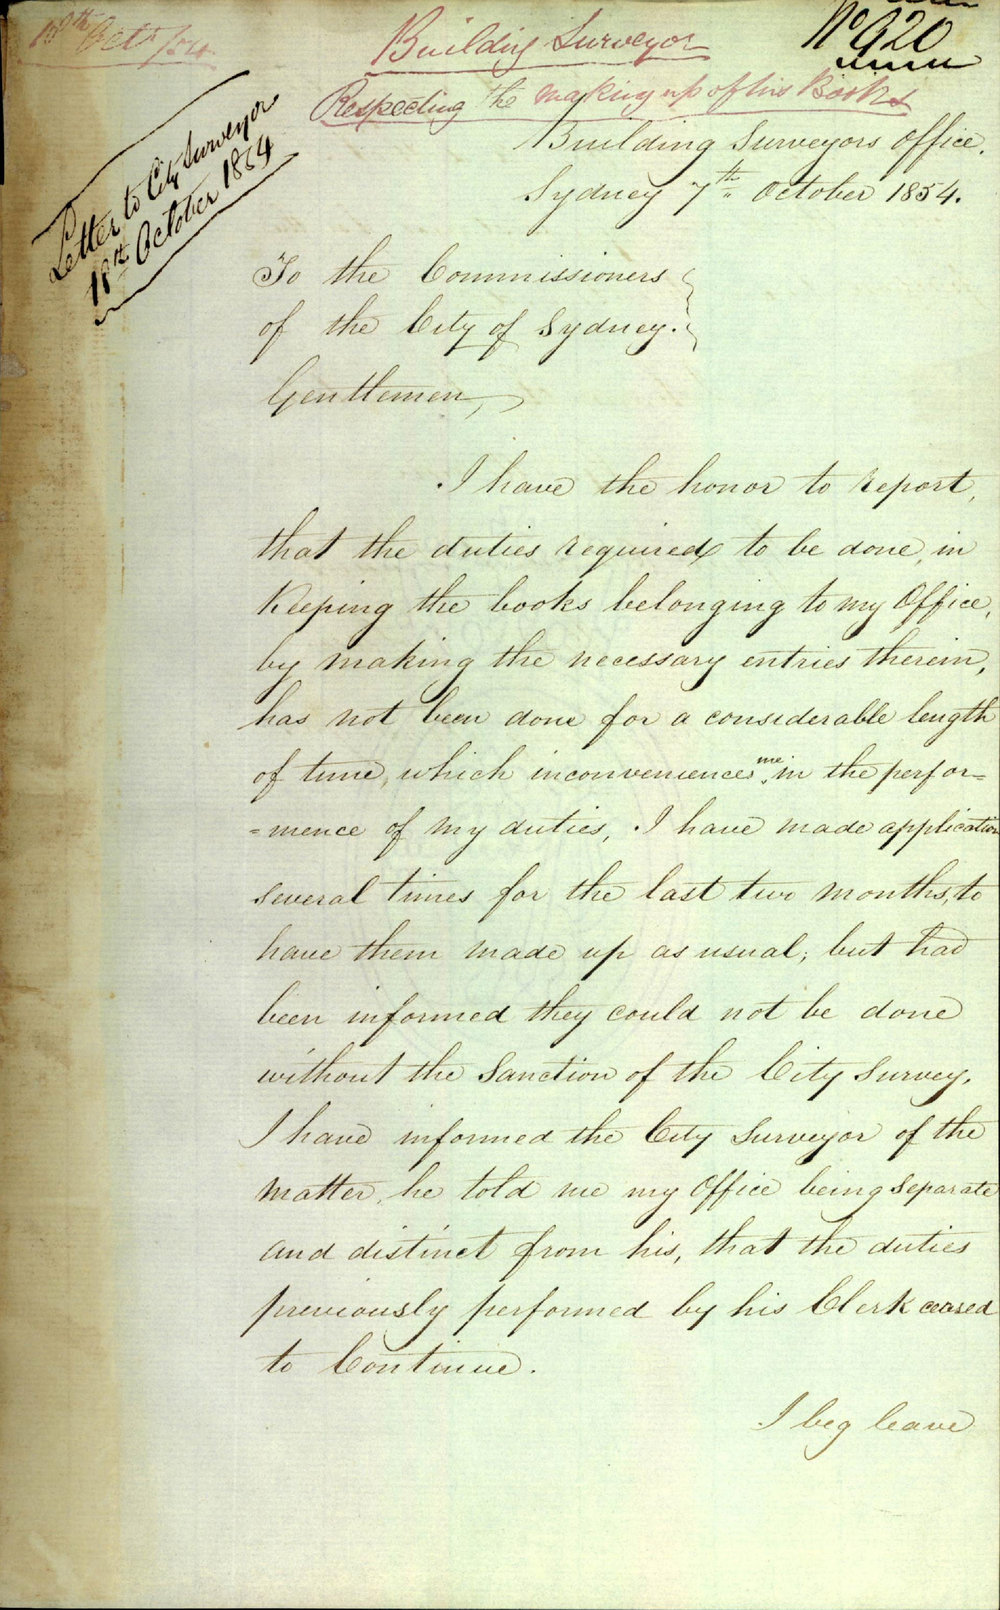 Octr/54
Building Surveyor
No 920
Respecting the making up of his Books
Letter to City Surveyor
18th October 1854
Building Surveyors Office,
Sydney 7th October 1854.
To the Commissioners
of the City of Sydney.
Gentlemen,
I have the honor to report,
that the duties required to be done, in
Keeping the books belonging to my Office,
by making the necessary entries therein,
has not been done for a considerable length
of time, which inconveniences me in the perfor=
=mence of my duties, I have made application
several times for the last two months, to
have them made up as usual; but had
been informed they could not be done
without the Sanction of the City Survey,
I have informed the City Surveyor of the
matter, he told me my Office being separate
and distinct from his, that the duties
previously performed by his Clerk ceased
to Continue.
I beg leave